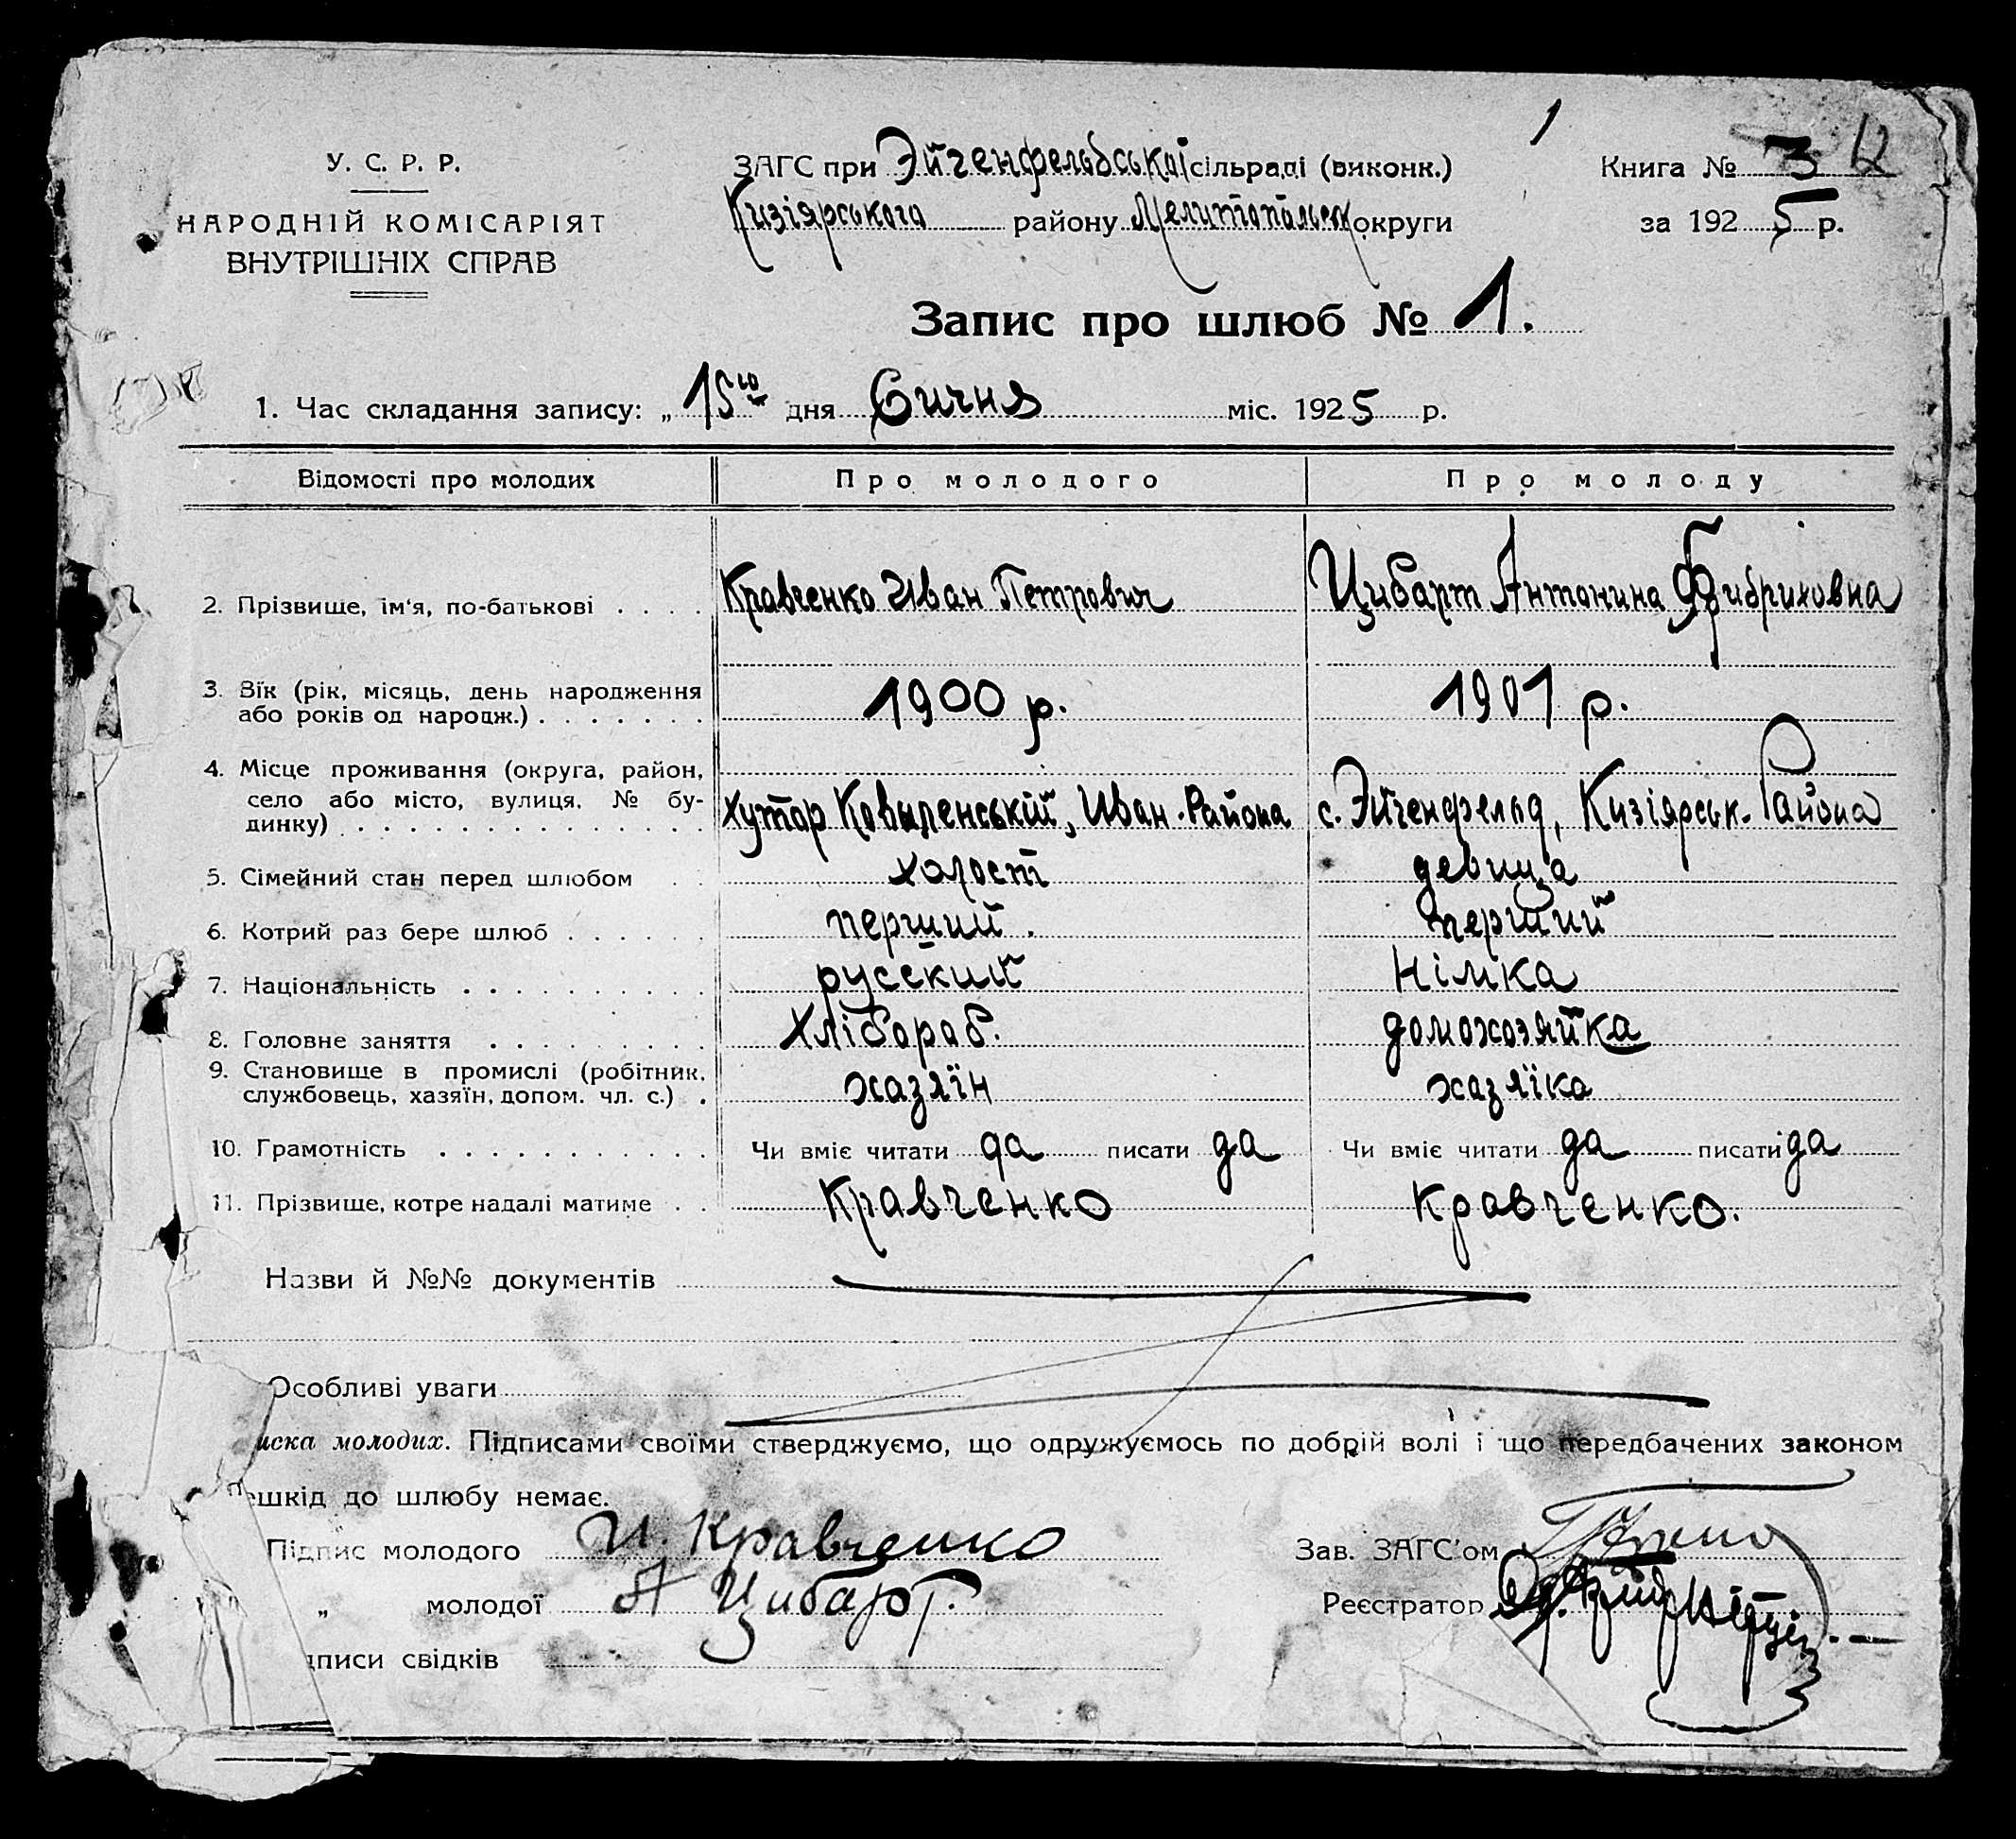 1
У. С. Р. Р.
НАРОДНІЙ КОМІСАРІЯТ
ВНУТРІШНІХ СПРАВ
ЗАГС при Эйгенфельдської сільраді (виконк.)
Кизіярського району Мелитопальськ округи
Книга № 3 12
за 1925 р.
Запис про шлюб № 1.
1. Час складання запису: „15го дня Сичня міс. 1925 р.
Відомості про молодих Про молодого Про молоду
2. Прізвище, ім‘я, по-батькові . . . . Кравченко Иван Петрович Цибарт Антонина Фридриховна
3. Вік (рік, місяць, день народження
або років од народж.) . . . . . . . 1900 р. 1901 р.
4. Місце проживання (округа, район,
село або місто, вулиця, № бу-
динку) . . . . . . . . . . . . . . Хутор Ковыленській, Иван. Района с. Эйгенфельд, Кизіярськ. Района
5. Сімейний стан перед шлюбом . . холост девица
6. Котрий раз бере шлюб . . . . . . перший. перший
7. Національність . . . . . . . . . . русский Німка
8. Головне заняття . . . . . . . . . Хлібораб. домохозяйка
9. Становище в промислі (робітник,
службовець, хазяїн, допом. чл. с.) . хазяїн хазяїка
10. Грамотність . . . . . . . . . . . Чи вміє читати да писати да Чи вміє читати да писати да
11. Прізвище, котре надалі матиме . . Кравченко Кравченко.
Назви й №№ документів
Особливі уваги
иска молодих. Підписами своїми стверджуємо, що одружуємось по добрій волі і що передбачених законом
решкід до шлюбу немає.
Підпис молодого И. Кравченко
Зав. ЗАГС'ом
„ молодої А Цибарт.
Реєстратор
дписи свідків